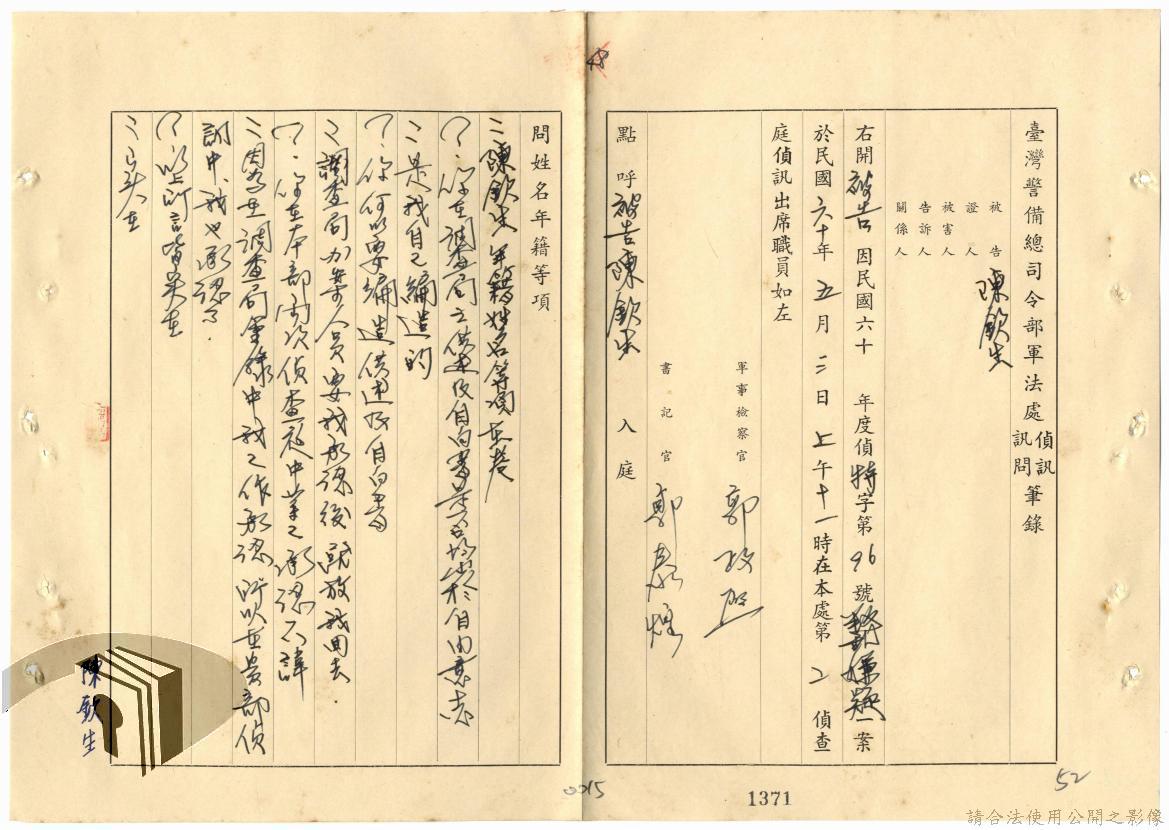 臺灣警備總司令部軍法處偵訊訊問筆錄
被告 陳欽生
證人
被害人
告訴人
關係人
右開被告因民國六十年度偵特字第96號叛亂嫌疑一案
於民國六十年五月三日上午十一時在本處第2偵查
庭偵訊出席職員如左
軍事檢察官 郭政熙
書記官 郭
點呼被告陳欽生入庭
問姓名年籍等項
陳欽生 年籍姓名等項在卷
你在調查局之供述及自白書是否均出於自由意志
是我自己編造的
你何以要編造供述及自白書
調查局办案人員要我承認後就放我回去
你在本部兩次偵查庭中業已承認不諱
因為在調查局筆錄中我已作承認所以在貴部偵
訊中,我也承認了
以上所言皆實在
實在
陳欽生
0015
1371
52
請合法使用公開之影像